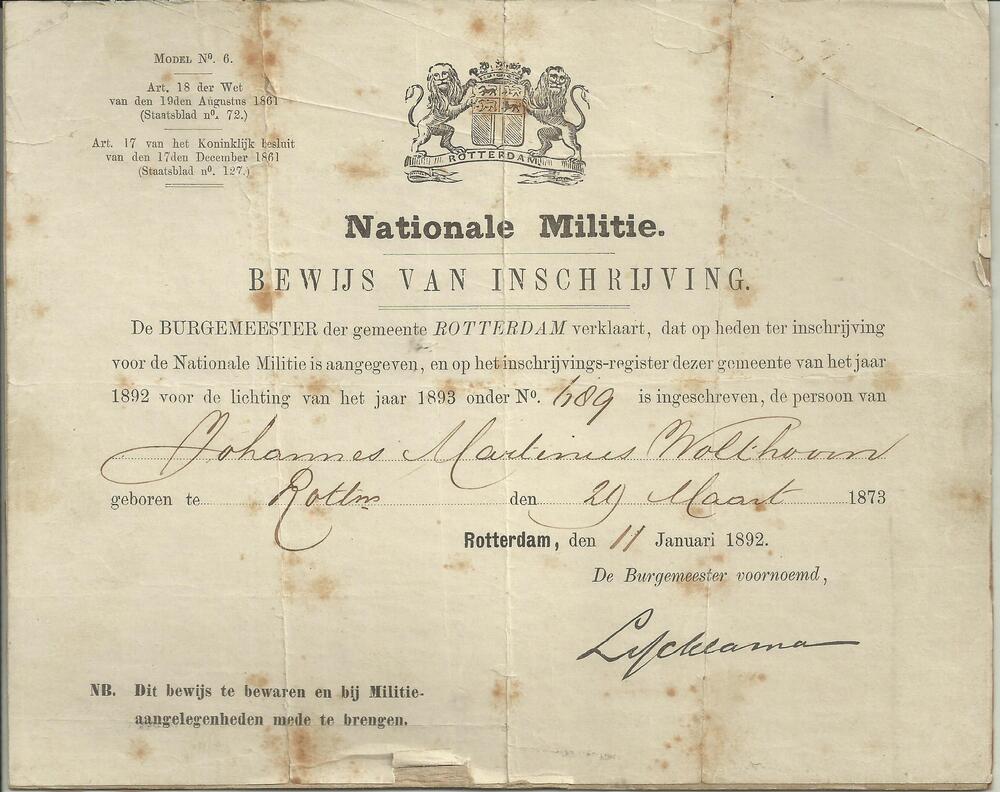 MODEL Nº. 6.
Art. 18 der Wet
van den 19den Augustus 1861
(Staatsblad nº. 72.)
Art. 17 van het Koninklijk besluit
van den 17den December 1861
(Staatsblad nº. 127.)
ROTTERDAM
Nationale Militie.
BEWIJS VAN INSCHRIJVING.
De BURGEMEESTER der gemeente ROTTERDAM verklaart, dat op heden ter inschrijving
voor de Nationale Militie is aangegeven, en op het inschrijvings-register dezer gemeente van het jaar
1892 voor de lichting van het jaar 1893 onder Nº. 689 is ingeschreven, de persoon van
Johannes Martinus Wolthoorn
geboren te Rottm den 29 Maart 1873
Rotterdam, den 11 Januari 1892.
De Burgemeester voornoemd,
Lycklama
NB. Dit bewijs te bewaren en bij Militie-
aangelegenheden mede te brengen.